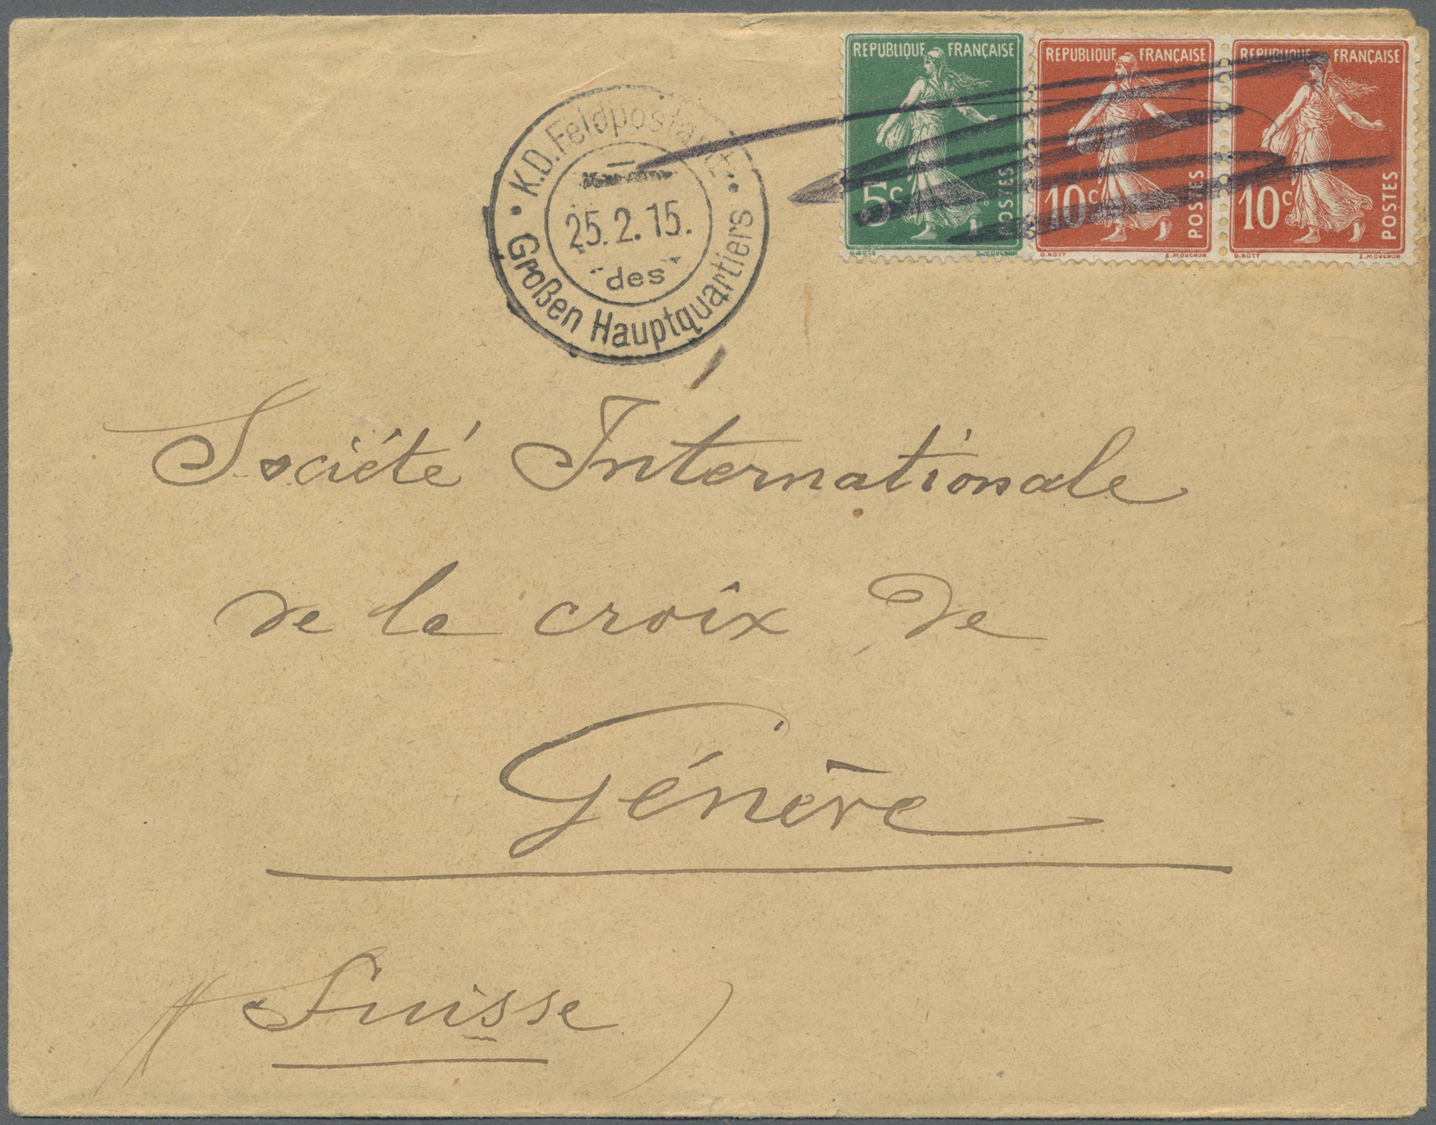 REPUBLIQUE FRANÇAISE
5c
POSTES
O. ROTY
REPUBLIQUE FRANÇAISE
10c
POSTES
O. ROTY E. MOUCHON
REPUBLIQUE FRANÇAISE
10c
POSTES
O. ROTY E. MOUCHON
K.D. Feldpostamt
25.2.15.
des
Großen Hauptquartiers
Société Internationale
de la croix de
Génève
(Suisse)